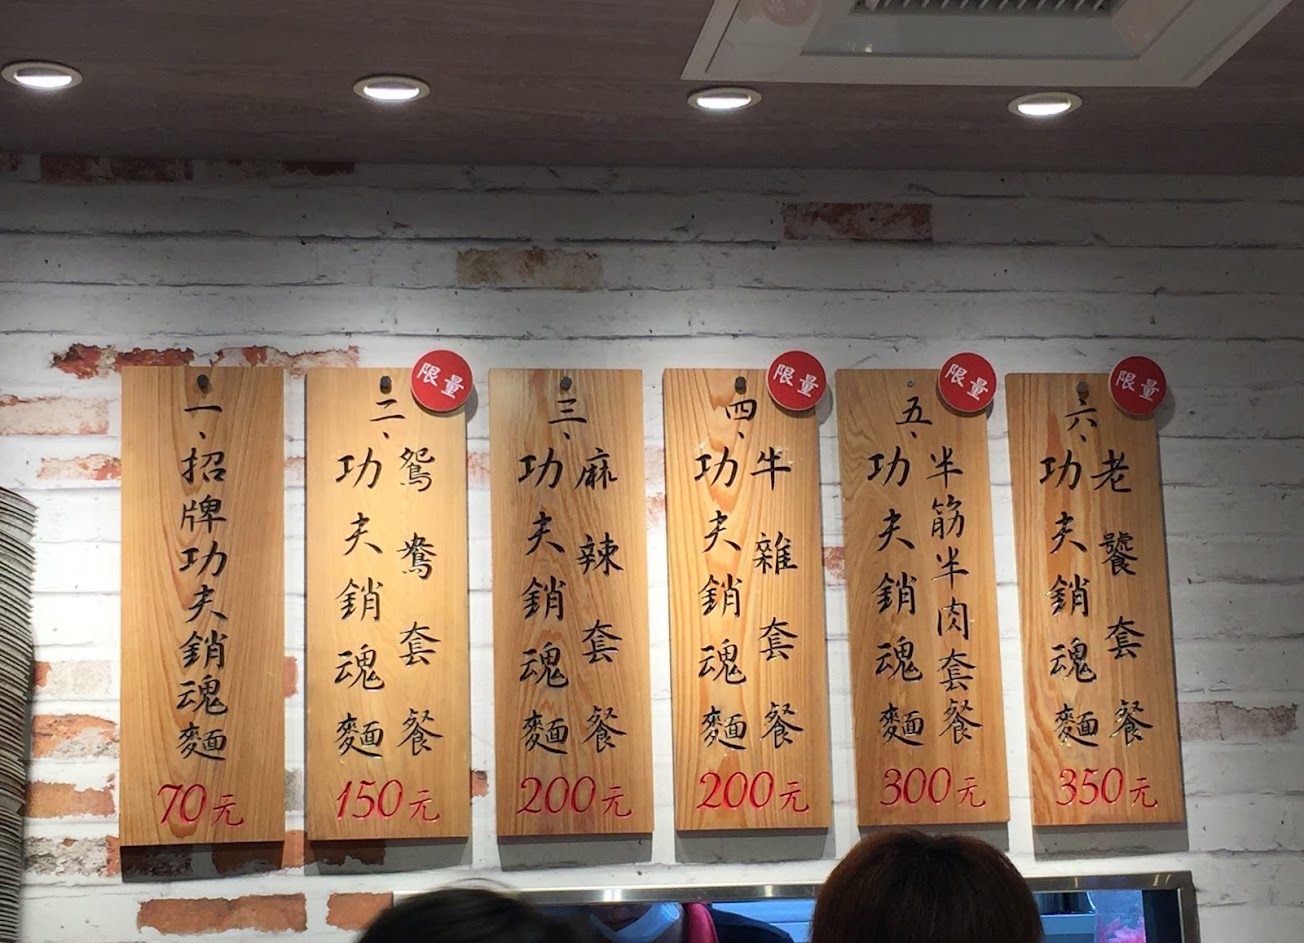 一、招牌功夫銷魂麵
70元
限量
二、
鴛鴦套餐
功夫銷魂麵
150元
三、
麻辣套餐
功夫銷魂麵
200元
限量
四、
牛雜套餐
功夫銷魂麵
200元
限量
五、
半筋半肉套餐
功夫銷魂麵
300元
限量
六、
老饕套餐
功夫銷魂麵
350元